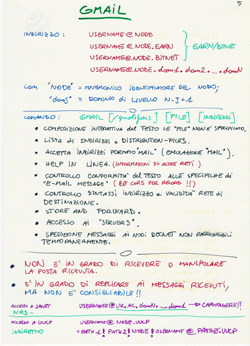 5
GMAIL
INDIRIZZO: USERNAME@NODE
USERNAME@NODE.EARN
USERNAME@NODE.BITNET
EARN/BITNET
USERNAME@NODE.dom1.dom2. ... .domN
CON "NODE" = MNEMONICO IDENTIFICATORE DEL NODO;
"domJ" = DOMINIO DI LIVELLO N-J+1
COMANDO: GMAIL [FILE]
• COMPOSIZIONE INTERATTIVA DEL TESTO SE "FILE" NON E' SPECIFICATO.
• LISTA DI INDIRIZZI E DISTRIBUTION-FILES.
• ACCETTA INDIRIZZI FORMATO MAIL (EMULAZIONE "MAIL").
• HELP IN LINEA. (INFORMAZIONI SU ALTRE RETI)
• CONTROLLO CONFORMITA' DEL TESTO ALLE SPECIFICHE DI
"E-MAIL MESSAGE" (80 CHRS PER RECORD !!!)
• CONTROLLO SINTASSI INDIRIZZO E VALIDITA' RETE DI
DESTINAZIONE.
• STORE AND FORWARD.
• ACCESSO AI "SERVERS".
• SPEDIZIONE MESSAGGI AI NODI DECNET NON RAGGIUNGIBILI
TEMPORANEAMENTE.
• NON E' IN GRADO DI RICEVERE O MANIPOLARE
LA POSTA RICEVUTA.
• E' IN GRADO DI REPLICARE AI MESSAGGI RICEVUTI,
MA NON E' CONSIGLIABILE!!
ACCESSO A JANET
NRS
ACCESSO A UUCP USERNAME@NODE.UUCP
INDIRETTO